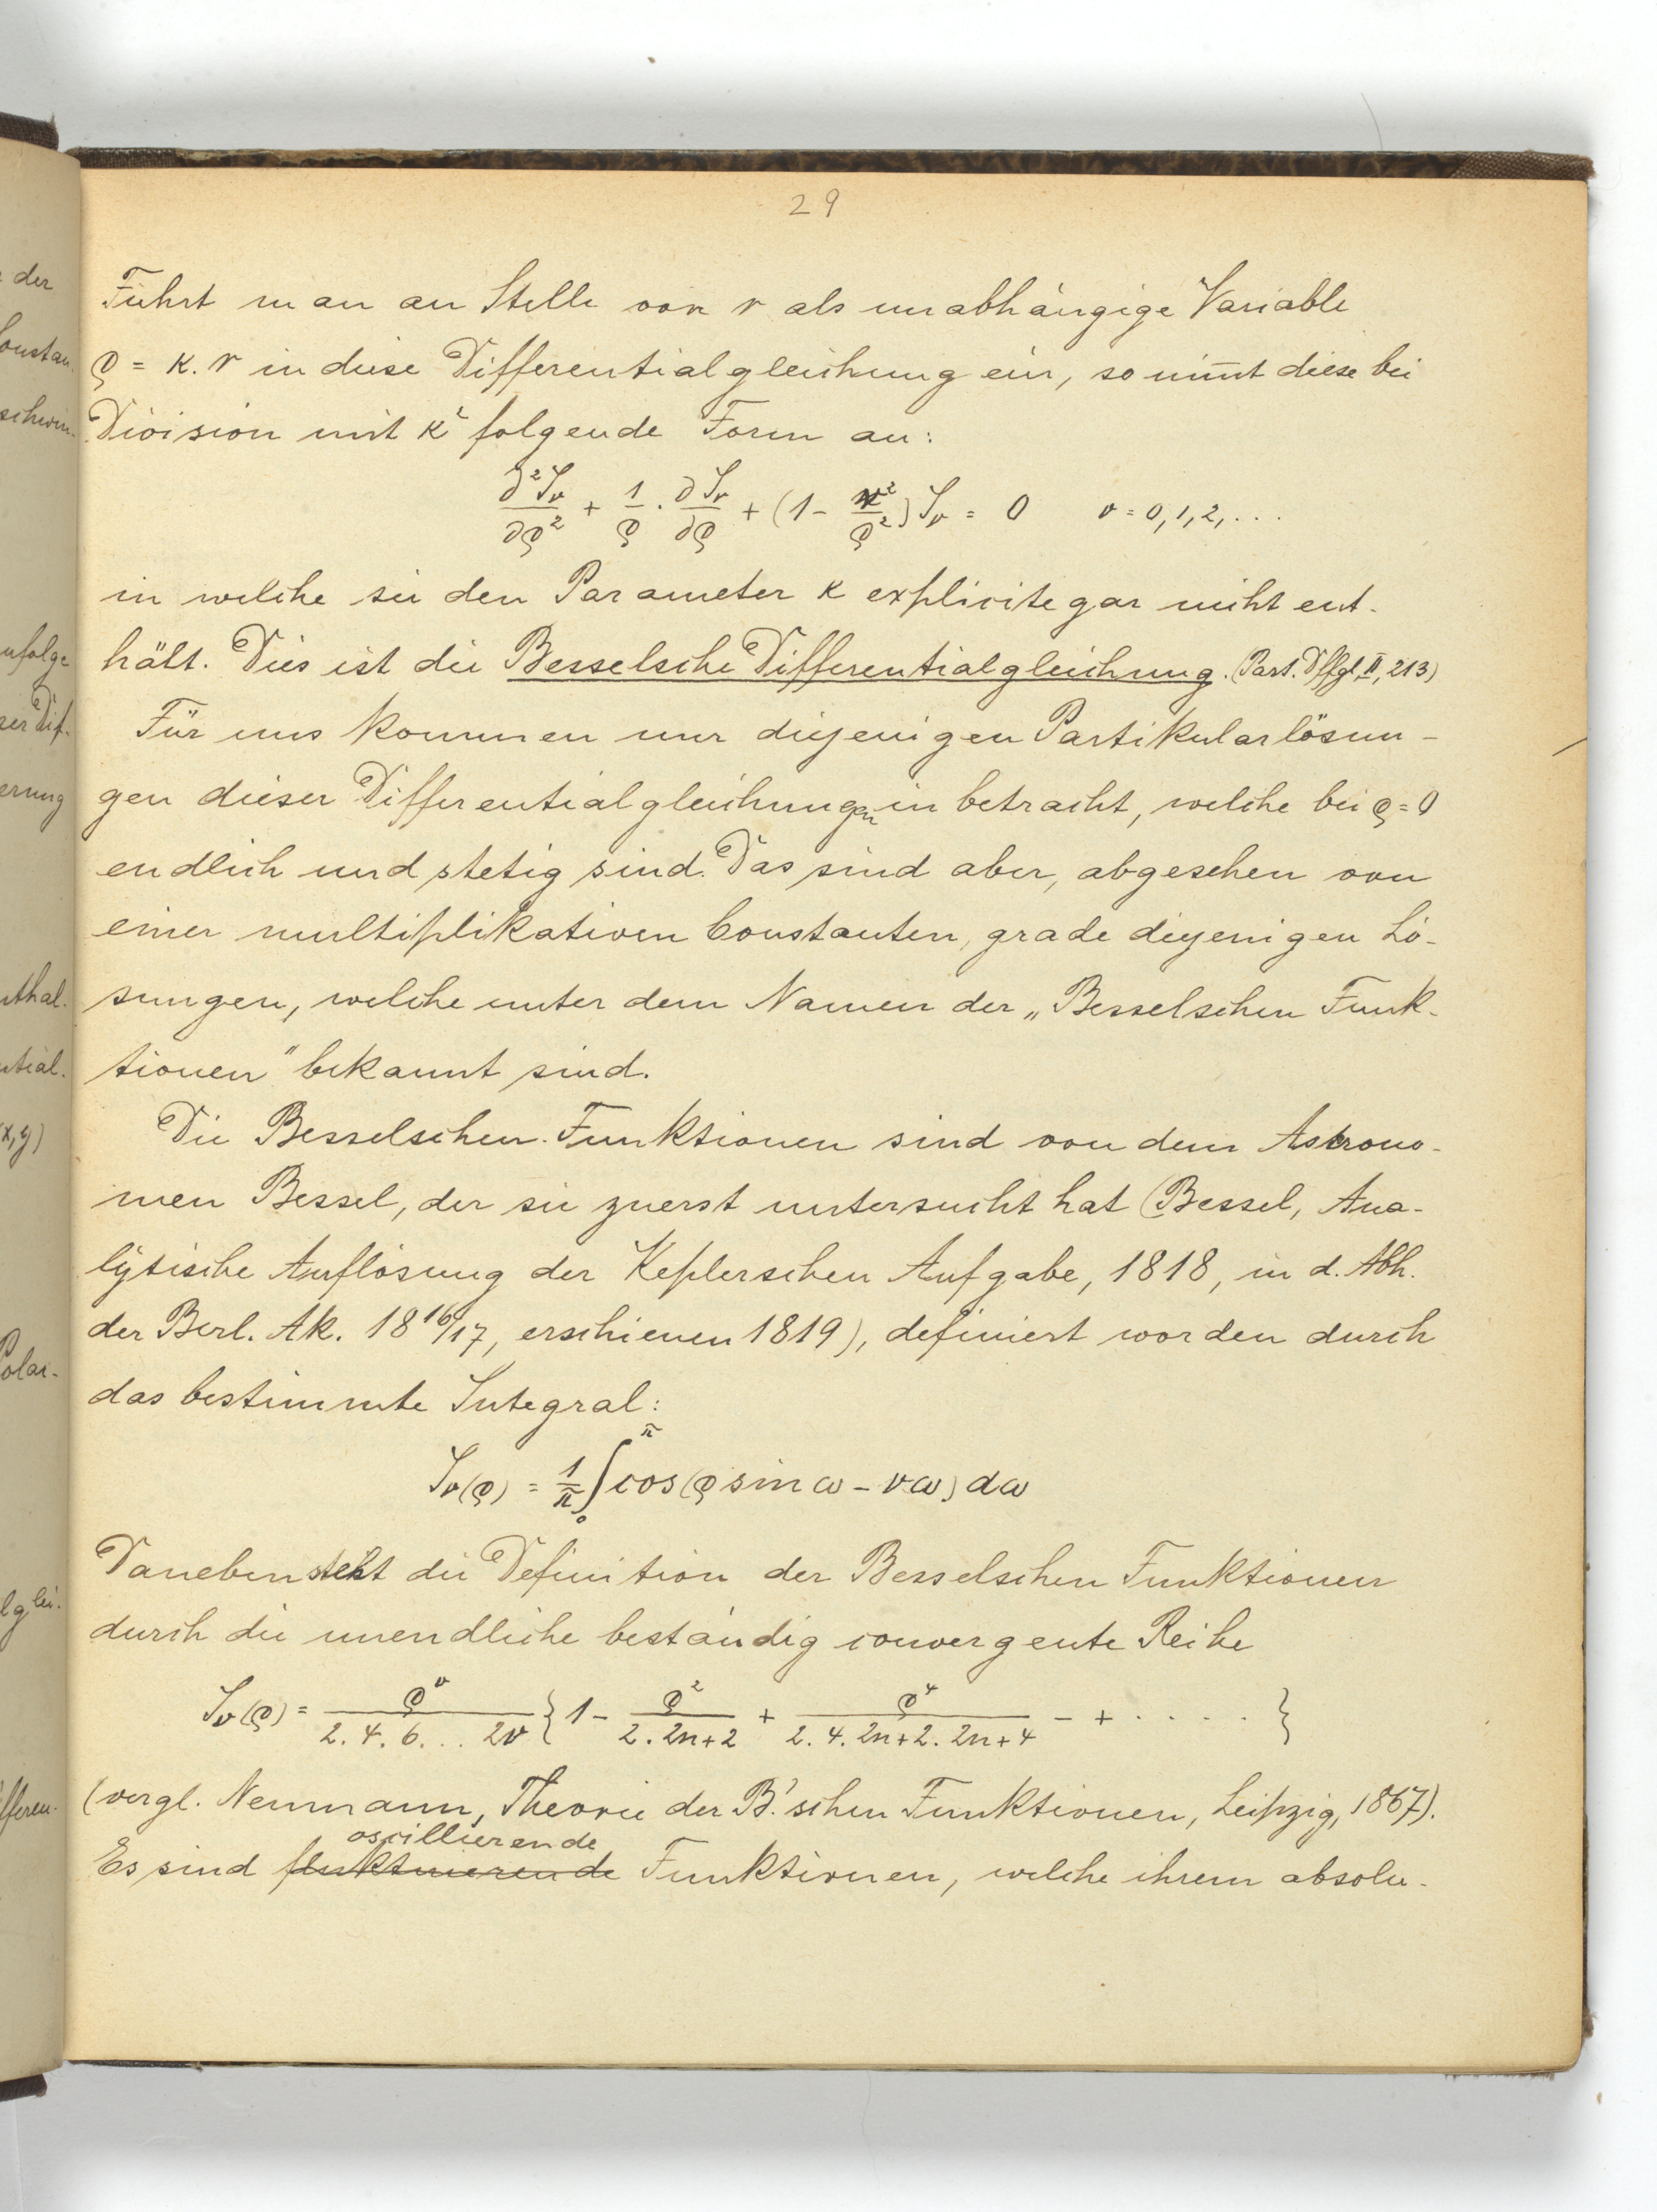 29
Führt man an Stelle von r als unabhängige Variable
ρ = k. r in diese Differentialgleichung ein, so nim̅t diese bei
Division mit k² folgende Form an:
∂²J_ν/∂ρ² + 1/ρ · ∂J_ν/∂ρ + (1 - ν²/ρ²) J_ν = 0 ν = 0, 1, 2, . . .
in welche sie den Parameter k explicite gar nicht ent-
hält. Dies ist die Besselsche Differentialgleichung. (Part. Dffgl, II, 213)
Für uns kommen nur diejenigen Partikularlösun-
gen dieser Differentialgleichungen in betracht, welche bei ρ = 0
endlich und stetig sind. Das sind aber, abgesehen von
einer multiplikativen Constanten, grade diejenigen Lö-
sungen, welche unter dem Namen der „Besselschen Funk-
tionen" bekannt sind.
Die Besselschen Funktionen sind von dem Astrono-
men Bessel, der sie zuerst untersucht hat (Bessel, Ana-
lytische Auflösung der Keplerschen Aufgabe, 1818, in d. Abh.
der Berl. Ak. 18 16/17, erschienen 1819), definiert worden durch
das bestimmte Integral:
J_ν(ρ) = 1/π ∫₀^π cos(ρ sin ω - νω) dω
Daneben steht die Definition der Besselschen Funktionen
durch die unendliche beständig convergente Reihe
J_ν(ρ) = ρ^ν/(2. 4. 6. . . 2ν) { 1 - ρ²/(2. 2n+2) + ρ⁴/(2. 4. 2n+2. 2n+4) - + . . . . . }
(vergl. Neumann, Theorie der B.'schen Funktionen, Leipzig, 1867).
oscillierende
Es sind fluktuierende Funktionen, welche ihrem absolu-
der
Constan-
schwin-
zufolge
ser Dif-
erung
nthal-
ntial-
(x, y)
Polar-
lglei-
ifferen-